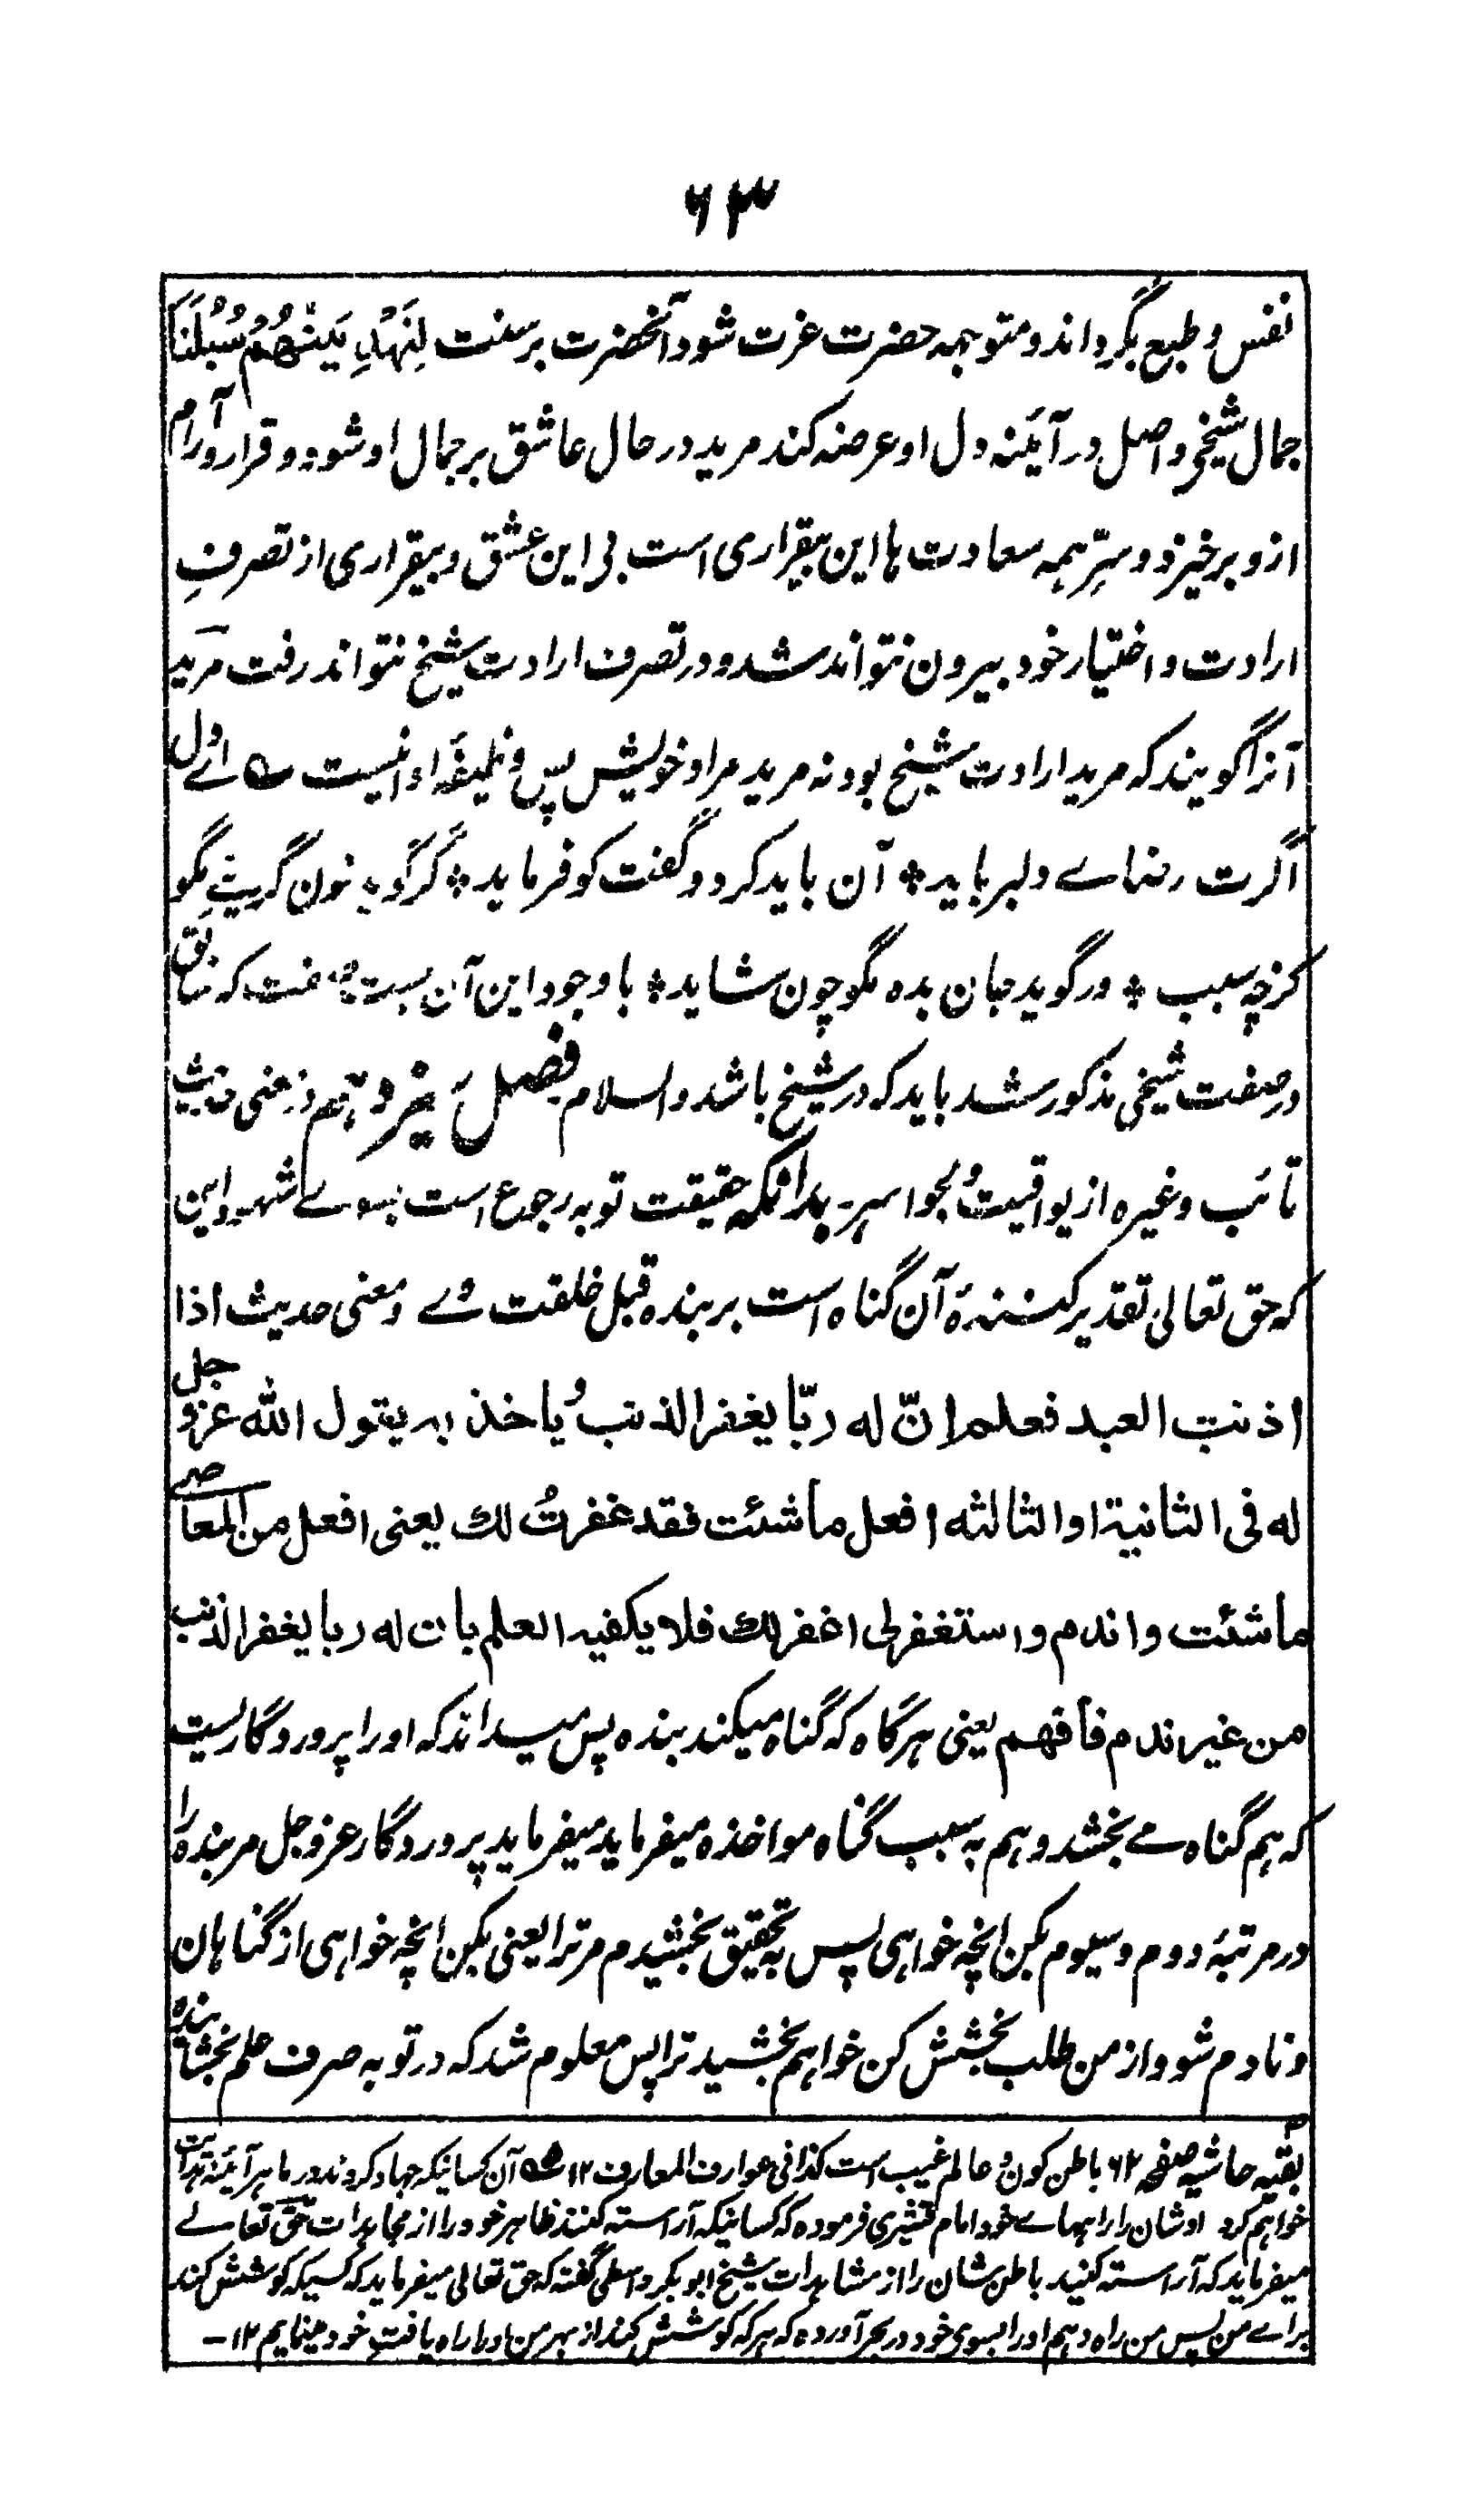 ۶۳
نفس و طبع بگرداند و متوجه حضرت عزت شود آنحضرت بر سنت لَنَهْدِيَنَّهُمْ سُبُلَنَا
جمال شیخی واصل در آیٔنه دل او عرضه کند مرید در حال عاشق بر جمال او شود و قرار و آرام
ازو برخیزد و سِرّ همه سعادت ها این بیقراری است بی این عشق و بیقراری از تصرفِ
ارادت و اختیار خود بیرون نتواند شد و در تصرف ارادت شیخ نتواند رفت مرید
آنرا گویند که مرید ارادت شیخ بود نه مرید مراد خویش پس وظیفهٔ او اینست ؎ اے دل
اگرت رضاے دلبر باید ٭ آن باید کرد و گفت کو فرماید ٭ گر گوید خون گری مگو
کز چه سبب ٭ ور گوید جان بده مگو چون شاید ٭ باوجود این آن بست صفت که سابق
در صفت شیخی مذکور شد باید که در شیخ باشد والسلام فصل در معنی حدیث
تائب وغیره از یواقیتُ الجواهر بدانکه حقیقت توبه رجوع است بسوے شهود این
که حق تعالیٰ تقدیر کنندهٔ آن گناه است بر بنده قبل خلقت وے و معنی حدیث اذا
اذنب العبد فعلم انّ له ربّا یغفر الذنبُ یاخذ به یقول الله عز و جل
له فی الثانیة او الثالثه افعل ما شئت فقد غفرتُ لك یعنی افعل من المعاصی
ما شئت و اندم و استغفرلی اغفرلك فلا یکفیه العلم بان له ربا یغفر الذنب
من غیر ندم فافهم یعنی هرگاه که گناه میکند بنده پس میداند که او را پروردگاریست
که هم گناه مے بخشد و هم به سبب گناه مواخذه میفرماید میفرماید پروردگار عز و جل مر بنده را
در مرتبهٔ دوم و سیوم بکن انچه خواهی پس به تحقیق بخشیدم مر ترا یعنی بکن انچه خواهی از گناهان
و نادم شو و از من طلب بخشش کن خواهم بخشید ترا پس معلوم شد که در توبه صرف علم بخشاینده
بقیه حاشیه صفحه ۶۲ باطن کون و عالم غیب است کذا فی عوارف المعارف ۱۲ ؎ آن کسانیکه جهاد کردند در ما هر آئنه هدایت
خواهم کرد اوشان را راههاے خود امام قشیری فرموده که کسانیکه آراسته کنند ظاهر خود را از مجاهدات حق تعالے
میفرماید که آراسته کنید باطن شان را از مشاهدات شیخ ابوبکر واسطی گفته که حق تعالی میفرماید که کسیکه کوشش کند
براے من پس من راه دهم او را بسوی خود در بحر آورده که هر که کوشش کند از بهر من او را راه یافت خود مینمایم ۱۲ـ